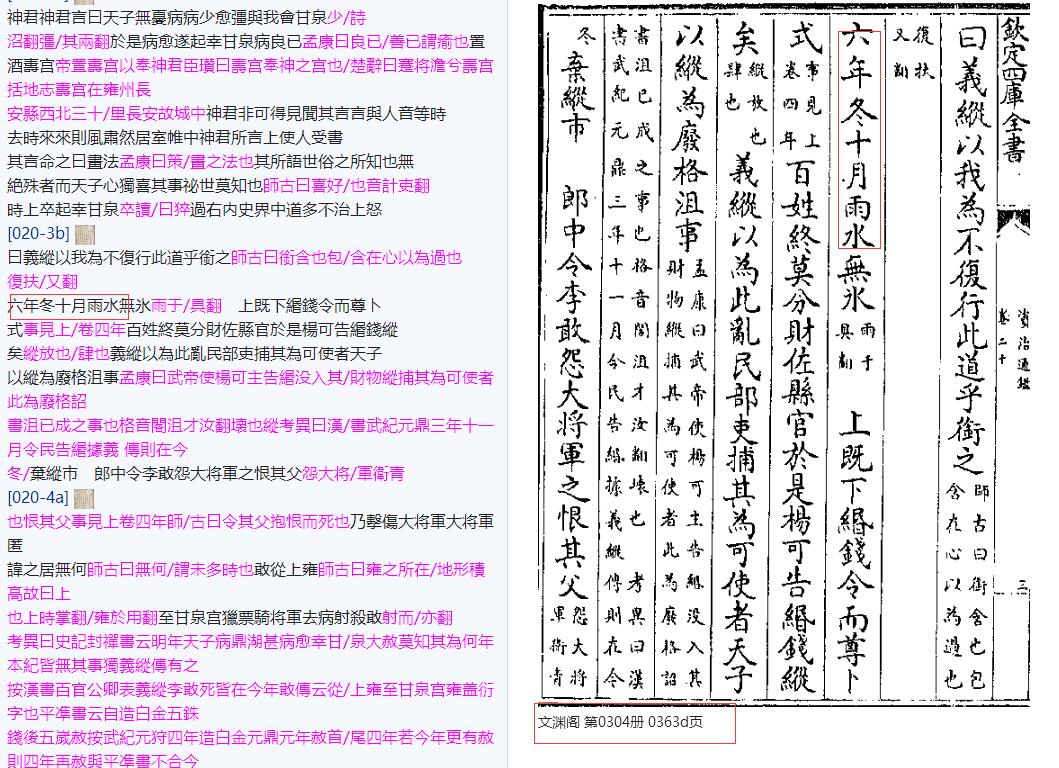 神君神君言曰天子無憂病病少愈彊與我會甘泉少/詩
沼翻彊/其兩翻於是病愈遂起幸甘泉病良已孟康曰良已/善已謂瘉也置
酒壽宫帝置壽宫以奉神君臣瓚曰壽宫奉神之宫也/楚辭曰蹇将澹兮壽宫
括地志壽宫在雍州長
安縣西北三十/里長安故城中神君非可得見聞其言言與人音等時
去時來來則風肅然居室帷中神君所言上使人受書
其言命之曰畫法孟康曰策/畫之法也其所語世俗之所知也無
絶殊者而天子心獨喜其事祕世莫知也師古曰喜好/也音計吏翻
時上卒起幸甘泉卒讀/曰猝過右内史界中道多不治上怒
[020-3b]
曰義縱以我為不復行此道乎銜之師古曰銜含也包/含在心以為過也
復扶/又翻
六年冬十月雨水無氷雨于/具翻　上既下緡錢令而尊卜
式事見上/卷四年百姓終莫分財佐縣官於是楊可告緡錢縱
矣縱放也/肆也義縱以為此亂民部吏捕其為可使者天子
以縱為廢格沮事孟康曰武帝使楊可主告緡没入其/財物縱捕其為可使者
此為廢格詔
書沮已成之事也格音閣沮才汝翻壊也縱考異曰漢/書武紀元鼎三年十一
月令民告緡據義 傳則在今
冬/棄縱市　郎中令李敢怨大将軍之恨其父怨大将/軍衛青
[020-4a]
也恨其父事見上卷四年師/古曰令其父抱恨而死也乃擊傷大将軍大将軍
匿
諱之居無何師古曰無何/謂未多時也敢從上雍師古曰雍之所在/地形積
高故曰上
也上時掌翻/雍於用翻至甘泉宫獵票騎将軍去病射殺敢射而/亦翻
考異曰史記封禪書云明年天子病鼎湖甚病愈幸甘/泉大赦莫知其為何年
本紀皆無其事獨義縱傳有之
按漢書百官公卿表義縱李敢死皆在今年敢傳云從/上雍至甘泉宫雍盖衍
字也平凖書云自造白金五銖
錢後五嵗赦按武紀元狩四年造白金元鼎元年赦首/尾四年若今年更有赦
則四年再赦與平凖書不合今
欽定四庫全書
資治通鑑
卷二十
三
曰義縱以我為不復行此道乎銜之師古曰銜含也包含在心以為過也
復扶又翻
六年冬十月雨水無氷雨于具翻　上既下緡錢令而尊卜
式事見上卷四年百姓終莫分財佐縣官於是楊可告緡錢縱
矣縱放也肆也義縱以為此亂民部吏捕其為可使者天子
以縱為廢格沮事孟康曰武帝使楊可主告緡没入其財物縱捕其為可使者此為廢格詔
書沮已成之事也格音閣沮才汝翻壊也　考異曰漢書武紀元鼎三年十一月令民告緡據義縱傳則在今
冬棄縱市　郎中令李敢怨大将軍之恨其父怨大将軍衛青
文渊阁 第0304册 0363d页